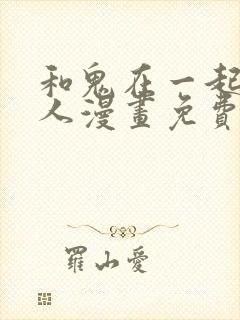 和鬼在一起
人漫畫免費
羅山愛